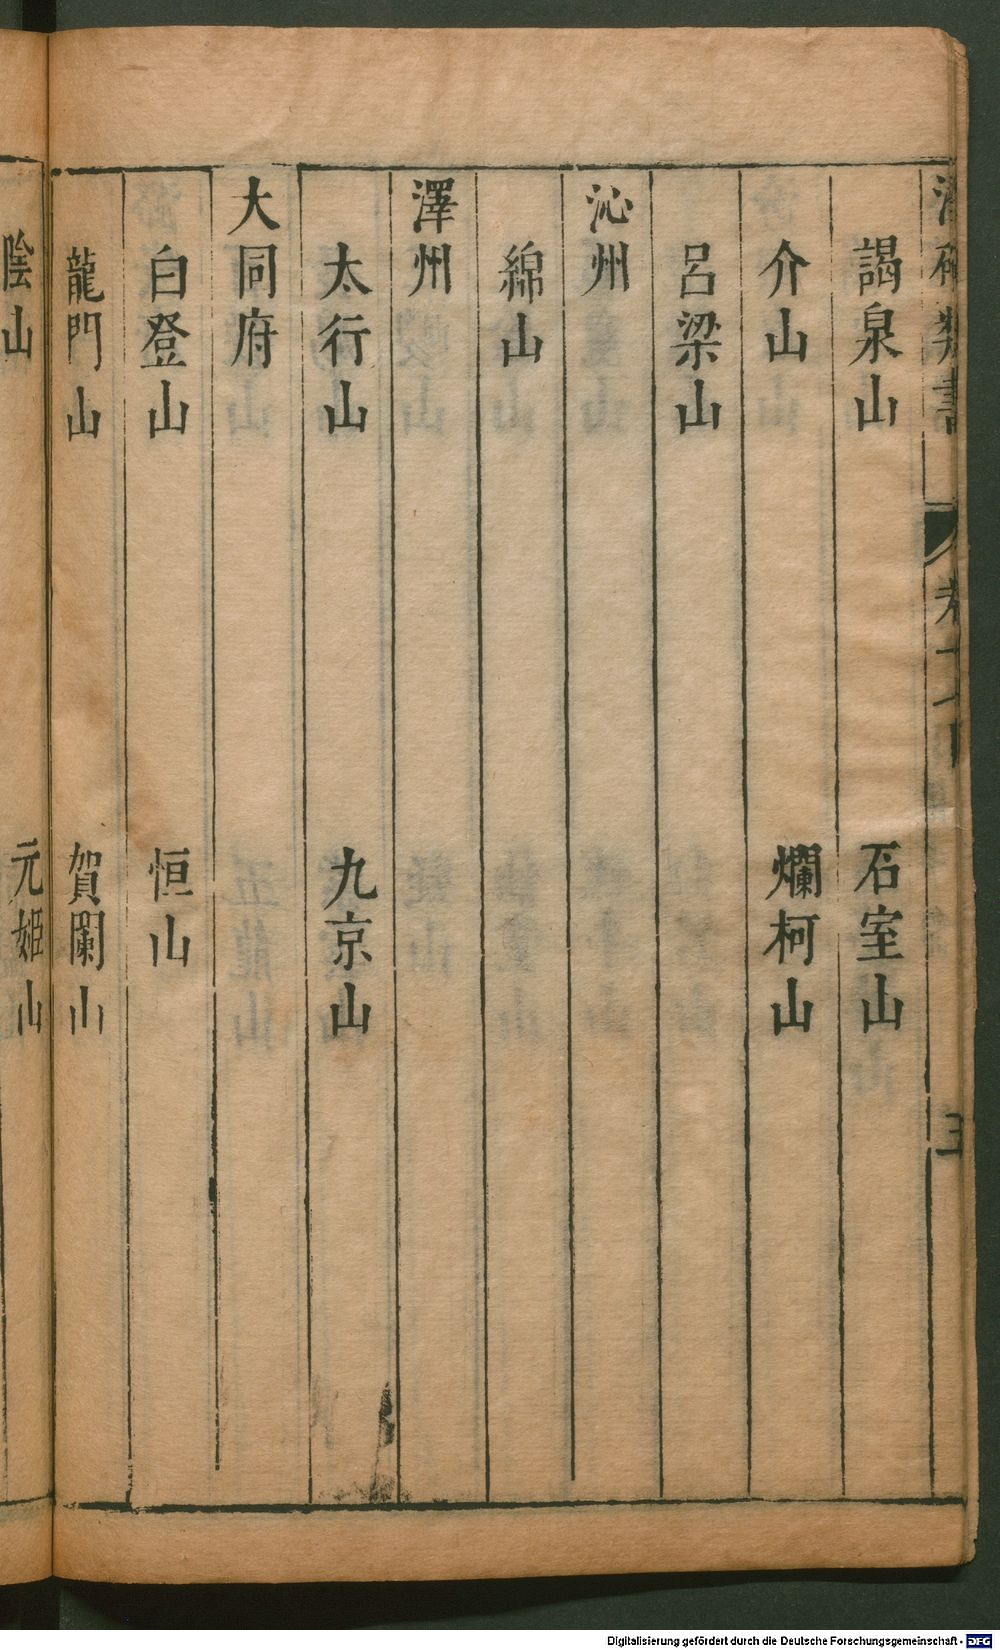 類書
卷十
謁泉山 石室山
介山 爛柯山
呂梁山
沁州
綿山
澤州
太行山 九京山
大同府
白登山 恒山
龍門山 賀闌山
陰山 元姬山
Digitalisierung gefördert durch die Deutsche Forschungsgemeinschaft - DFG